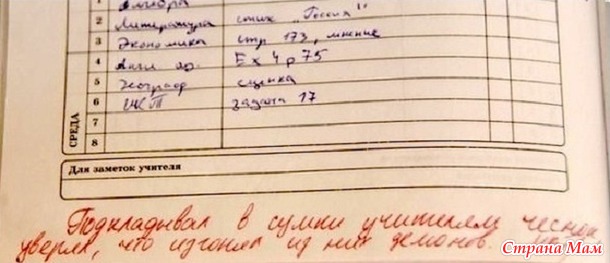 1 Алгебра
2 Литература стих „Россия"
3 Экономика стр 173, мнение
4 Англ яз. Ex 4 p 75
5 географ сценка
6 ИКТ задача 17
7
8
СРЕДА
Для заметок учителя
Подкладывал в сумки учителям чеснок
уверял, что изгоняет из них демонов.
Страна Мам